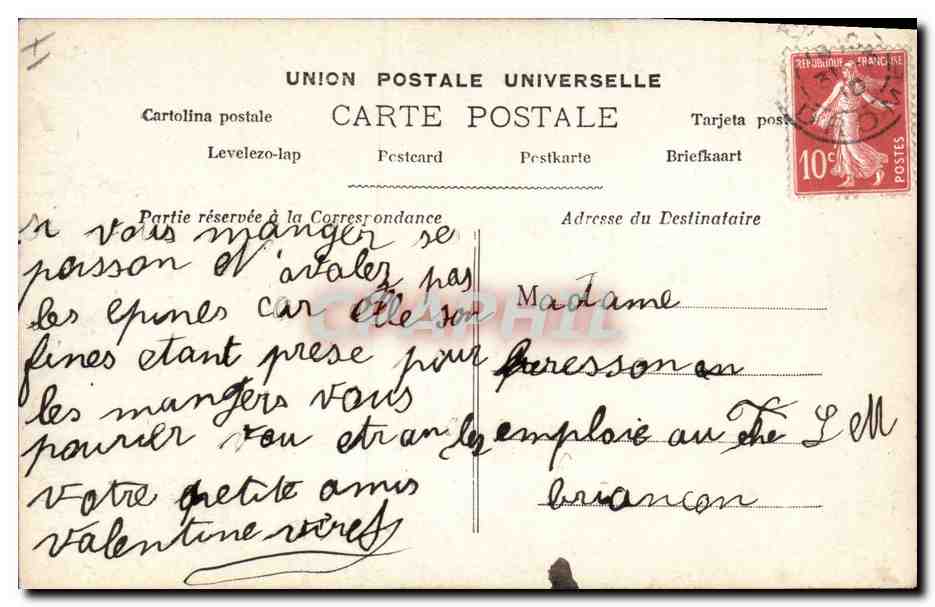 UNION POSTALE UNIVERSELLE
CARTE POSTALE
Cartolina postale
Tarjeta post
Levelezo-lap
Postcard
Postkarte
Briefkaart
REPUBLIQUE FRANÇAISE
10c POSTES
Partie réservée à la Correspondance
Adresse du Destinataire
si vous manger se
poisson N'avalez pas
les epines car elle son
fines etant prese pour
les mangers vous
pourier vou etranlez
votre petite amis
valentine
Madame
emploie au The L M
briancon
CPAPHIL